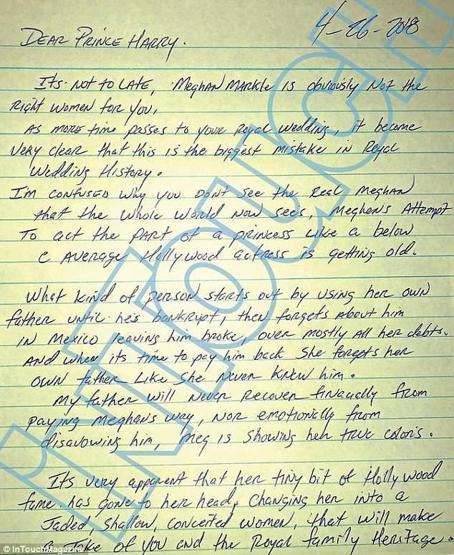 4-26-2018
DEAR PRINCE HARRY.
Its not to LATE, Meghan Markle is obviously Not the
Right women for you,
AS more time passes to your Royal Wedding, it became
very clear that this is the biggest mistake in Royal
Wedding History.
I'm confused why you don't see the Real Meghan
that the whole world Now sees, Meghans Attempt
To act the part of a princess like a below
C average Hollywood actress is getting old.
What kind of person starts out by using her own
father until he's bankrupt, then forgets about him
IN Mexico leaving him broke, over mostly all her debts.
And when its time to pay him back she forgets her
OWN father Like She Never knew him.
My father will Never Recover financially from
paying Meghans way, NOR emotionally from
disavowing him, Meg is showing her true colors.
It's very apparent that her tiny bit of Hollywood
fame has gone to her head, changing her into a
Jaded, shallow, conceited women, that will make
a Joke of you and the Royal family Heritage.
INTOUCH
© InTouchMagazine